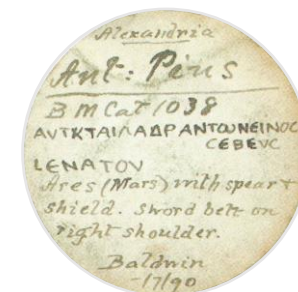 Alexandria
Ant: Pius
B M Cat 1038
ΑVΤΚΤΑΙΛΑΔΡΑΝΤΩΝΕΙΝΟC
CΕΒΕVC
LENATOV
Ares (Mars) with spear +
shield. Sword belt on
right shoulder.
Baldwin
-/7/90